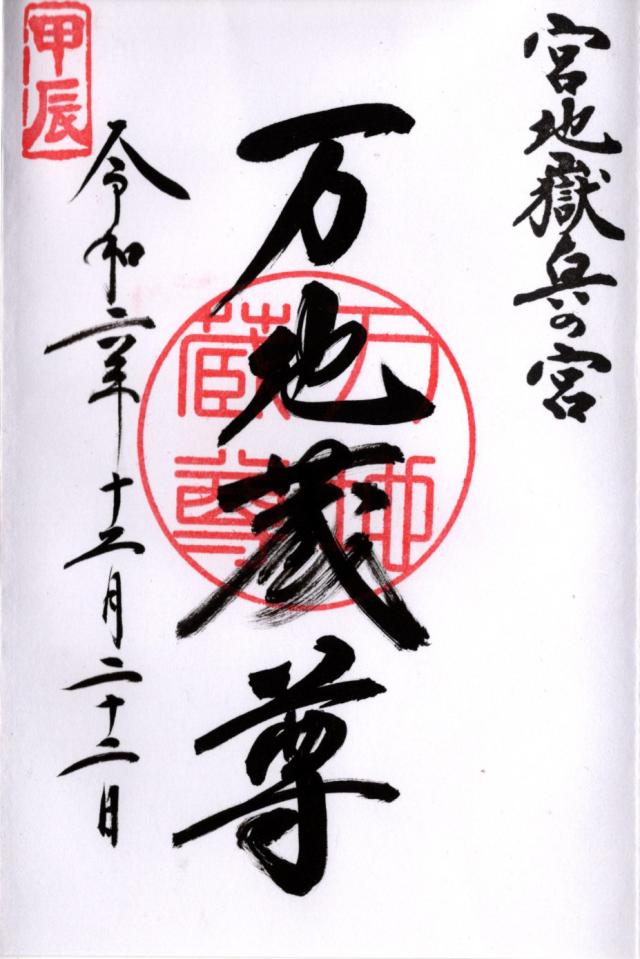 宮地嶽奥の宮
万地蔵尊
万地蔵尊
令和六年十二月二十二日
甲辰